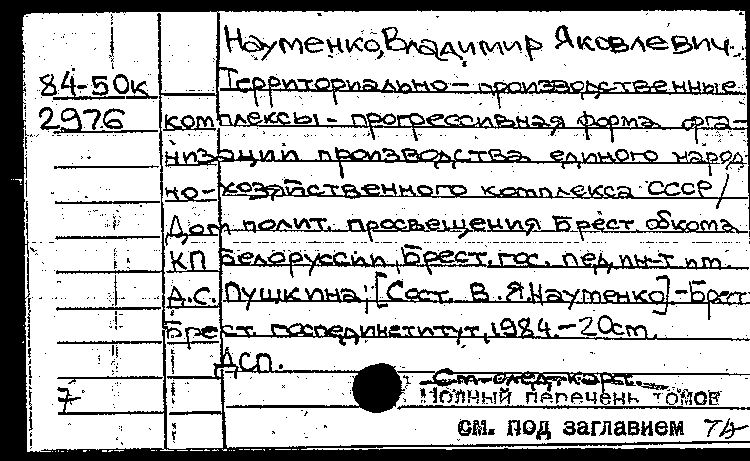 Науменко, Владимир Яковлевич.
84-50к Территориально-производственные
2976 комплексы - прогрессивная форма орга-
низации производства единого народ
но-хозяйственного комплекса СССР /
Дом полит. просвещения Брест обкома
КП Белоруссии, Брест. гос. пед. ин-т им.
А.С. Пушкина; [Сост. В.Я. Науменко] - Брест
Брест. госпединститут, 1984. - 20см.
ДСП.
См. след. карт.
7 Полный перечень томов
см. под заглавием